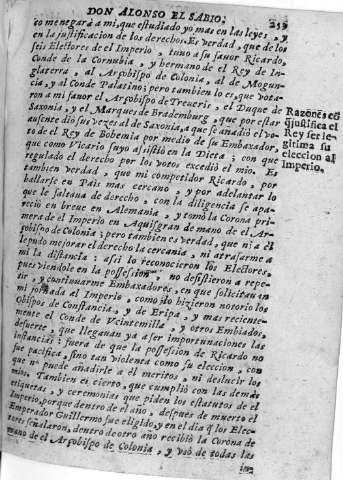 DON ALONSO EL SABIO. 259
co menegarà a mi, que estudiado yo mas en las leyes, y
en la justificacion de los derechos. Es verdad, que de los
seis Electores de el Imperio, tuuo a su fauor Ricardo,
Conde de la Cornubia, y hermano de el Rey de In-
glaterra, al Arçobispo de Colonia, al de Mogun-
cia, y al Conde Palatino; pero tambien lo es, que vota-
ron a mi fauor el Arçobispo de Treueris, el Duque de
Saxonia, y el Marques de Brademburg, que por estar
ausente dio sus vezes al de Saxonia, a que se añadiò el vo-
to de el Rey de Bohemia por medio de su Embaxador,
que como Vicario suyo assistiò en la Dieta; con que
regulado el derecho por los votos excediò el mio. Es
tambien verdad, que mi competidor Ricardo, por
hallarse en Pais mas cercano, y por adelantar lo
que le faltaua de derecho, con la diligencia se apa-
reciò en breue en Alemania, y tomò la Corona pri-
mera de el Imperio en Aquisgran de mano de el Ar-
çobispo de Colonia; pero tambien es verdad, que ni a èl
le pudo mejorar el derecho la cercania, ni atrasarme a
mi la distancia: assi lo reconocieron los Electores,
pues viendole en la possession, no desistieron a repe-
tir, y continuarme Embaxadores, en que solicitauan
mi jornada al Imperio, como lo hizieron notorio los
Obispos de Constancia, y de Eripa, y mas reciente-
mente el Conde de Veintemilla, y otros Embiados,
de suerte, que llegauan ya a ser importunaciones las
instancias: fuera de que la possession de Ricardo no
fue pacifica, sino tan violenta como su eleccion, con
que ni puede añadirle a èl meritos, ni deslucir los
mios. Tambien es cierto, que cumpliò con las demàs
etiquetas, y ceremonias que piden los estatutos de el
Imperio, porque dentro de el año, despues de muerto el
Emperador Guillermo fue eligido, y en el dia q̃ los Elec-
tores señalaron, dentro de otro año recibiò la Corona de
mano de el Arçobispo de Colonia, y vsò de todas las
Razones cõ
q̃ justifica el
Rey ser le-
gitima su
eleccion al
Imperio.